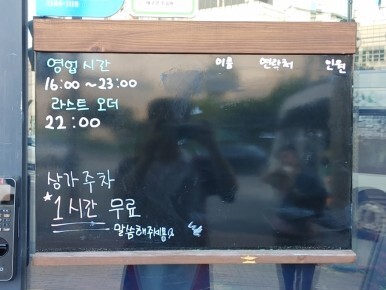 영업시간 이름 연락처 인원
16:00 ~ 23:00
라스트 오더
22:00
상가주차
*1시간 무료